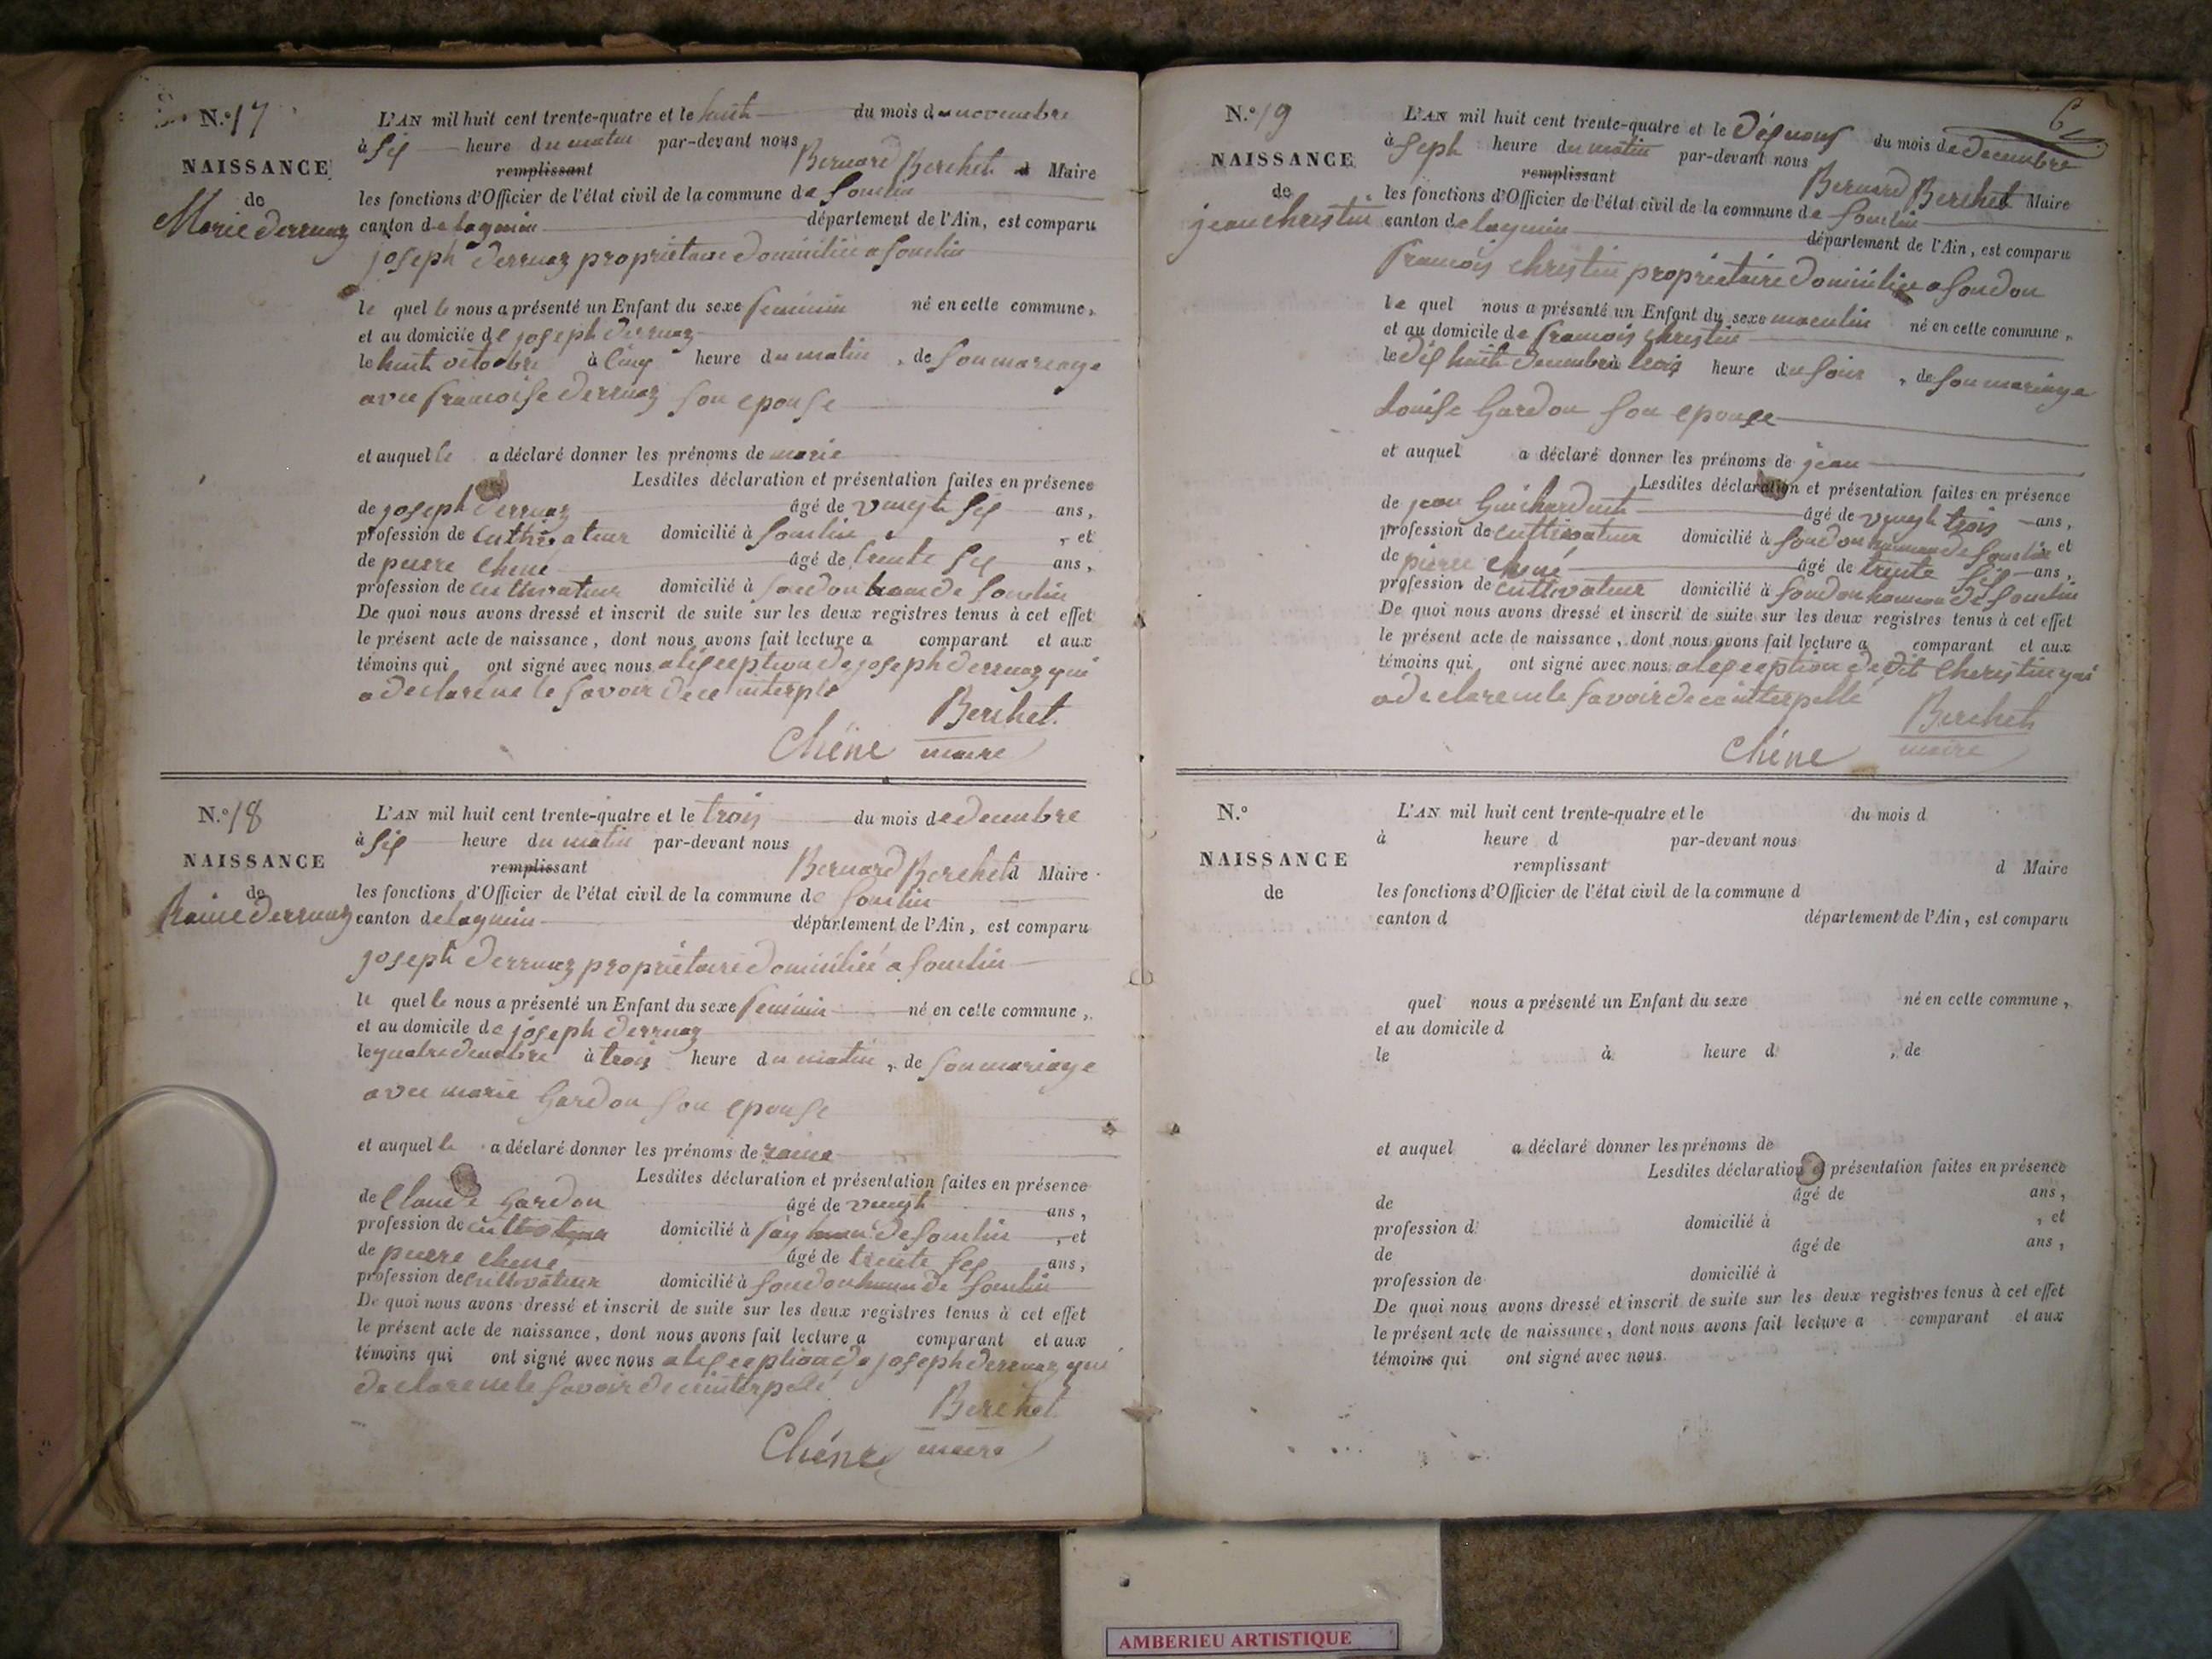 N.° 17
NAISSANCE
de
Marie derruaz
L'AN mil huit cent trente-quatre et le huit du mois de novembre
à sis heure du matin par-devant nous
remplissant Bernard Berchet d Maire
les fonctions d'Officier de l'état civil de la commune de Souclin
canton de lagnieu département de l'Ain, est comparu
joseph derruaz propriétaire domicilié a Souclin
le quel le nous a présenté un Enfant du sexe feminin né en cette commune,
et au domicile de joseph derruaz
le huit octobre à cinq heure du matin, de son mariage
avec francoise derruaz son epouse
et auquel le a déclaré donner les prénoms de marie
Lesdites déclaration et présentation faites en présence
de joseph derruaz âgé de vingt sis ans,
profession de cultivateur domicilié à Souclin, et
de pierre chene âgé de trente sis ans,
profession de cultivateur domicilié à Soudon ham de Souclin
De quoi nous avons dressé et inscrit de suite sur les deux registres tenus à cet effet
le présent acte de naissance, dont nous avons fait lecture a comparant et aux
témoins qui ont signé avec nous a lesception de joseph derruaz qui
a declare ne le savoir de ce
Berchet
Chéne maire
N.° 18
NAISSANCE
de
Raine derruaz
L'AN mil huit cent trente-quatre et le trois du mois de decembre
à sis heure du matin par-devant nous
remplissant Bernard Berchet d Maire
les fonctions d'Officier de l'état civil de la commune de Souclin
canton de lagnieu département de l'Ain, est comparu
joseph derruaz propriétaire domicilié a Souclin
le quel le nous a présenté un Enfant du sexe feminin né en cette commune,
et au domicile de joseph derruaz
le quatre à trois heure du matin, de son mariage
avec marie Gardon son epouse
et auquel le a déclaré donner les prénoms de raine
Lesdites déclaration et présentation faites en présence
de Claude Gardon âgé de vingt ans,
profession de domicilié à fay de Souclin, et
de pierre chene âgé de trente sis ans,
profession de cultivateur domicilié à Soudon de Souclin
De quoi nous avons dressé et inscrit de suite sur les deux registres tenus à cet effet
le présent acte de naissance, dont nous avons fait lecture a comparant et aux
témoins qui ont signé avec nous a lesception de joseph derruaz qui
declare ne le savoir de ce interpelé
Berchet
Chéne maire
6
N.° 19
NAISSANCE
de
jean christin
L'AN mil huit cent trente-quatre et le disneuf du mois de decembre
à seph heure du matin par-devant nous
remplissant Bernard Berchet Maire
les fonctions d'Officier de l'état civil de la commune de Souclin
canton de lagnieu département de l'Ain, est comparu
francois christin propriétaire domicilié a Soudon
le quel nous a présenté un Enfant du sexe masculin né en cette commune,
et au domicile de francois christin
le dis huit decembre à trois heure du soir, de son mariage
Louise Gardon son epouse
et auquel a déclaré donner les prénoms de jean
Lesdites déclaration et présentation faites en présence
de jean âgé de vingt trois ans,
profession de cultivateur domicilié à Soudon hameau de Souclin et
de pierre chené âgé de trente sis ans,
profession de cultivateur domicilié à Soudon hameau de Souclin
De quoi nous avons dressé et inscrit de suite sur les deux registres tenus à cet effet
le présent acte de naissance, dont nous avons fait lecture a comparant et aux
témoins qui ont signé avec nous a lesception de dit Cheristin qui
a declare ne le savoir de ce interpellé
Berchet
Chéne maire
N.°
NAISSANCE
de
L'AN mil huit cent trente-quatre et le du mois d
à heure d par-devant nous
remplissant d Maire
les fonctions d'Officier de l'état civil de la commune d
canton d département de l'Ain, est comparu
quel nous a présenté un Enfant du sexe né en cette commune,
et au domicile d
le à heure d, de
et auquel a déclaré donner les prénoms de
Lesdites déclaration et présentation faites en présence
de âgé de ans,
profession d domicilié à, et
de âgé de ans,
profession de domicilié à
De quoi nous avons dressé et inscrit de suite sur les deux registres tenus à cet effet
le présent acte de naissance, dont nous avons fait lecture a comparant et aux
témoins qui ont signé avec nous.
AMBERIEU ARTISTIQUE